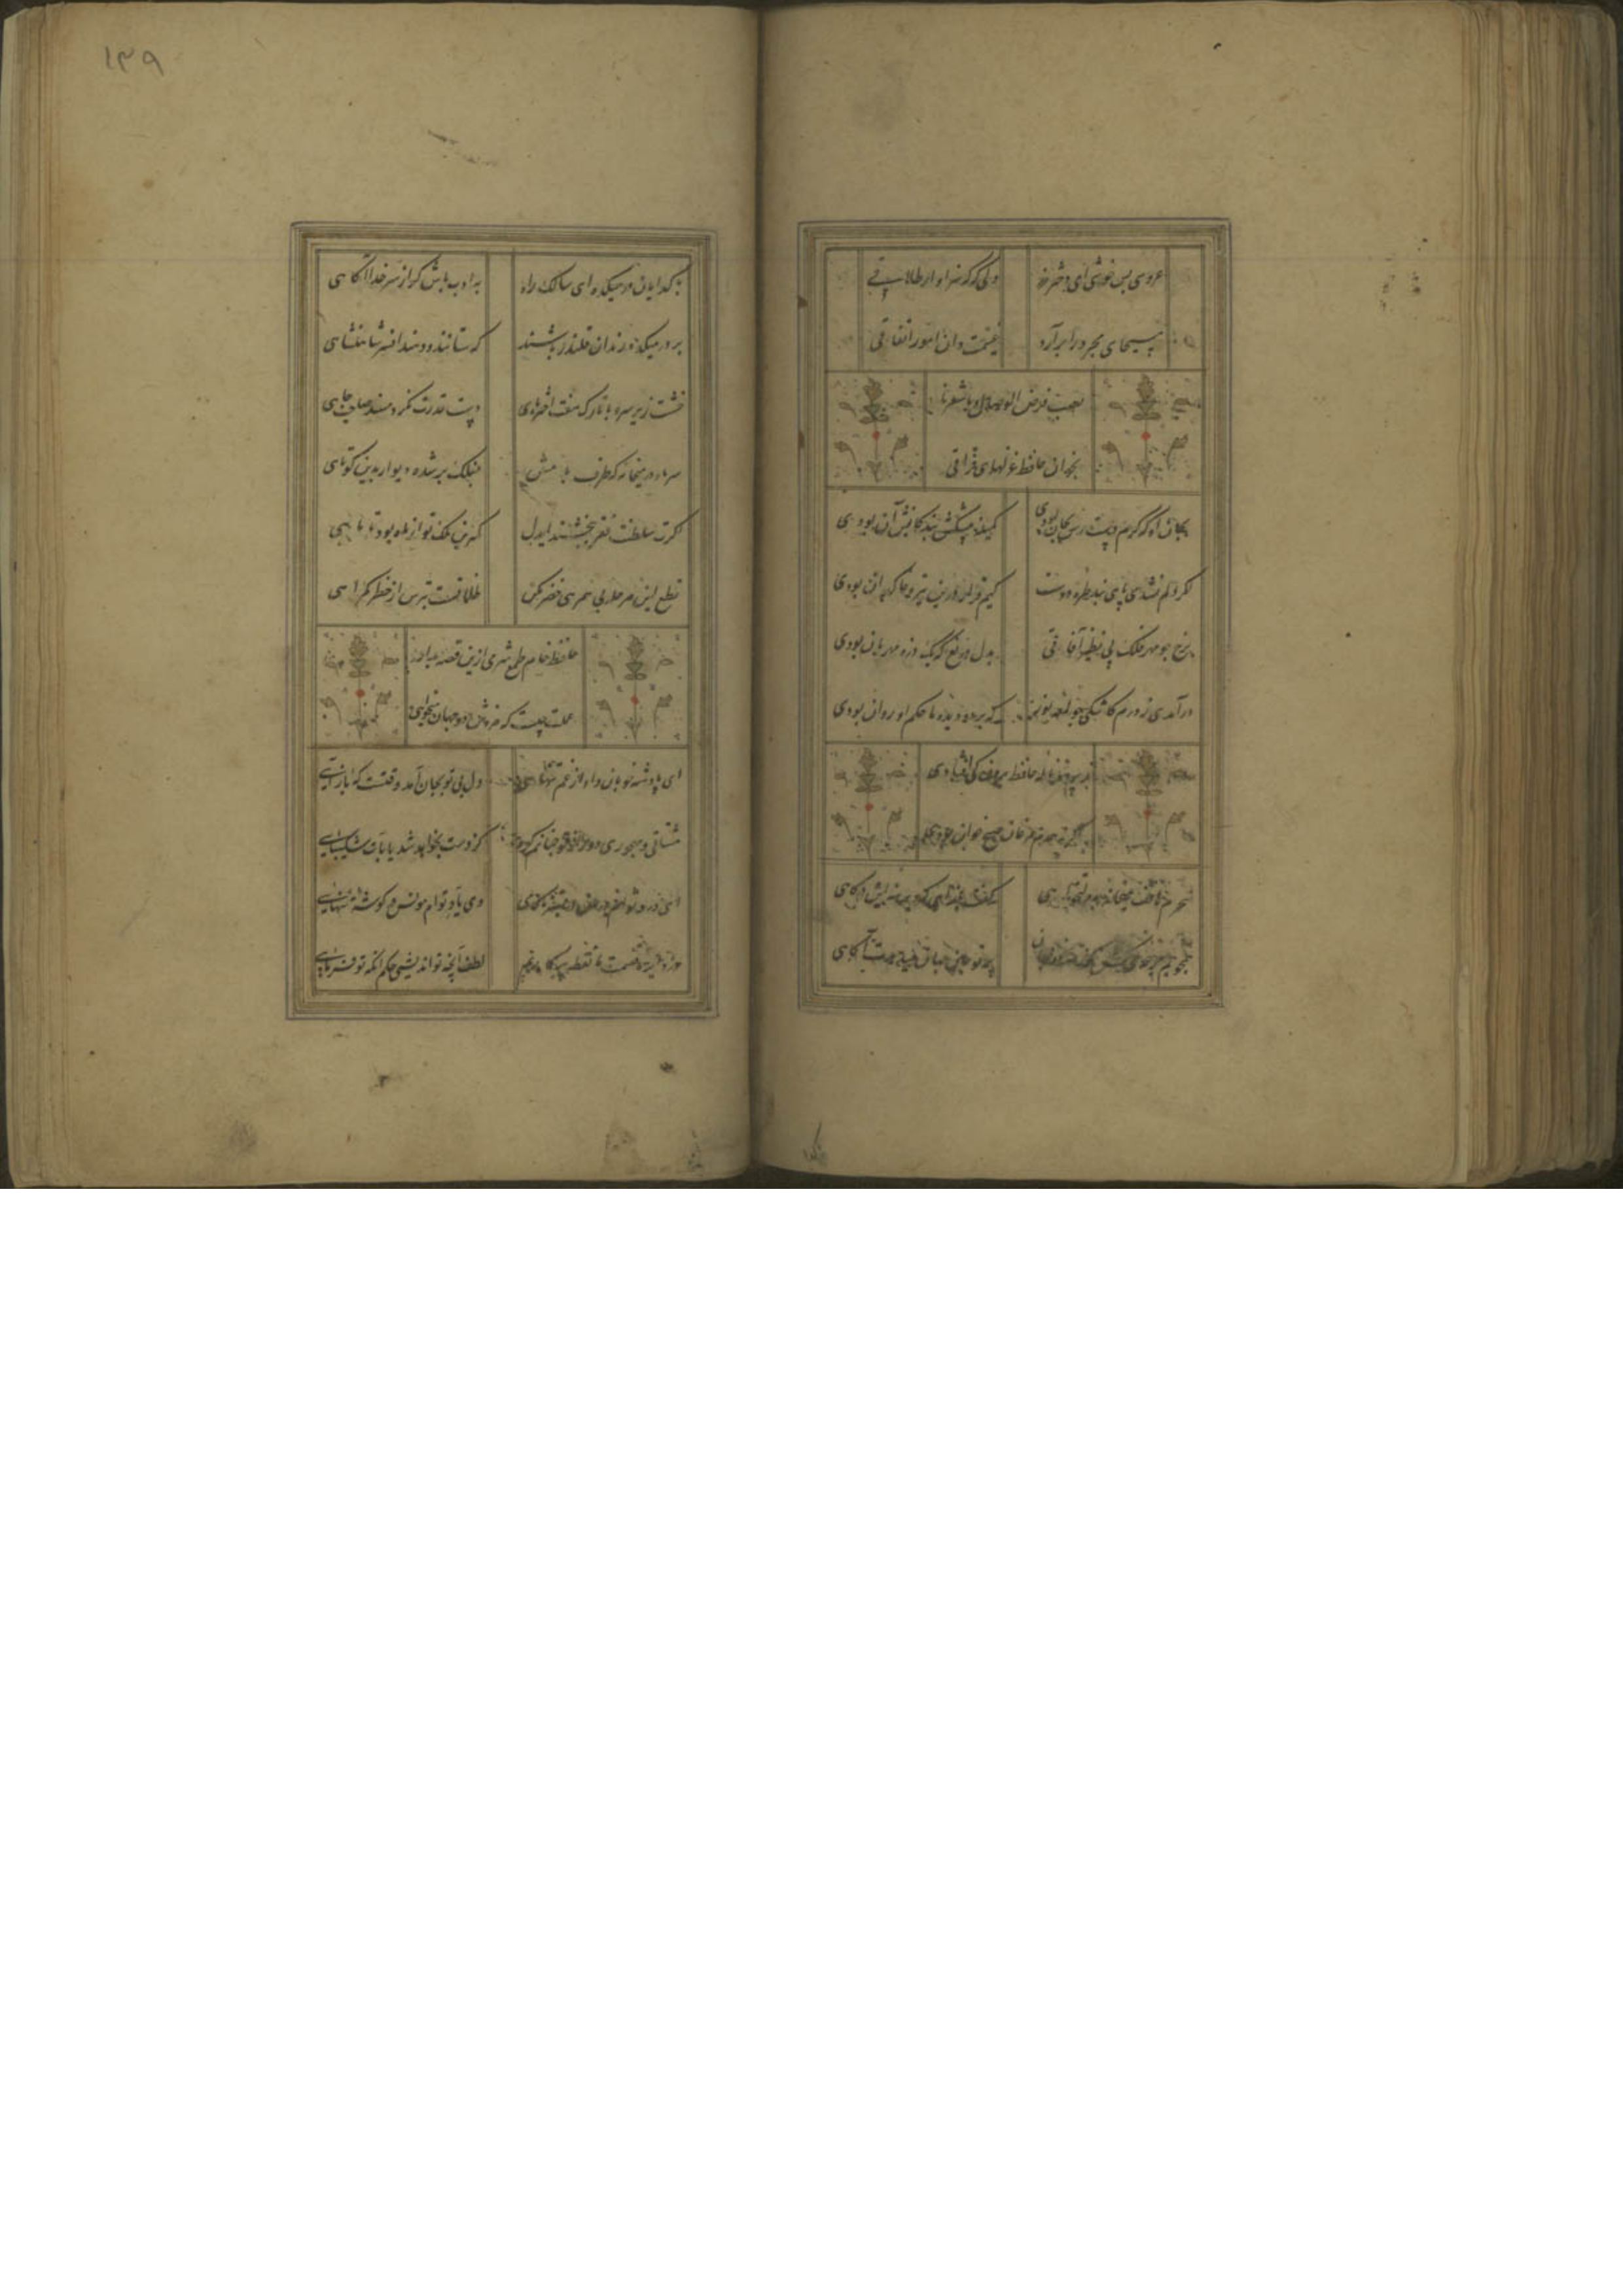 عروسی بس خوشی ای دختر رز ولی گه گه سزاوار طلاقی
مسیحای مجرد را برآرد
غنیمت دان امور اتفاقی
بخوان حافظ غزلهای فراقی
بجان او که گرم دسترس بجان بودی کمینه پیشکش بندگانش آن بودی
اگر دلم نشدی پای بند طره دوست کیم قرار درین تیره خاکدان بودی
برخ چو مهر فلک بی نظیر آفاقی بدل دریغ که یک ذره مهربان بودی
درآمدی ز درم کاشکی چو لمعه نور که بر دو دیده ما حکم او روان بودی
ز پرده ناله حافظ برون کی افتادی
سحرم هاتف میخانه بدولتخواهی گفت بازآی که دیرینه این درگاهی
پرتو جام جهان بین دهدت آگاهی
گدا
۱۳۹
با گدایان در میکده ای سالک راه به ادب باش گر از سر خدا آگاهی
بر در میکده رندان قلندر باشند که ستانند و دهند افسر شاهنشاهی
خشت زیر سر و بر تارک هفت اختر پای دست قدرت نگر و منصب صاحب جاهی
سر ما و در میخانه که طرف بامش بفلک بر شده دیوار بدین کوتاهی
اگرت سلطنت فقر ببخشند ایدل کمترین ملک تو از ماه بود تا ماهی
قطع این مرحله بی همرهی خضر مکن ظلماتست بترس از خطر گمراهی
حافظ خام طمع شرمی ازین قصه بدار
عملت چیست که مزدش دو جهان میخواهی
ای پادشه خوبان داد از غم تنهایی دل بی تو بجان آمد وقتست که بازآیی
مشتاقی و مهجوری دور از تو چنانم کرد کز دست بخواهد شد پایاب شکیبایی
وی یاد توام مونس در گوشه تنهایی
در دایره قسمت ما نقطه پرگاریم لطف آنچه تو اندیشی حکم آنکه تو فرمایی